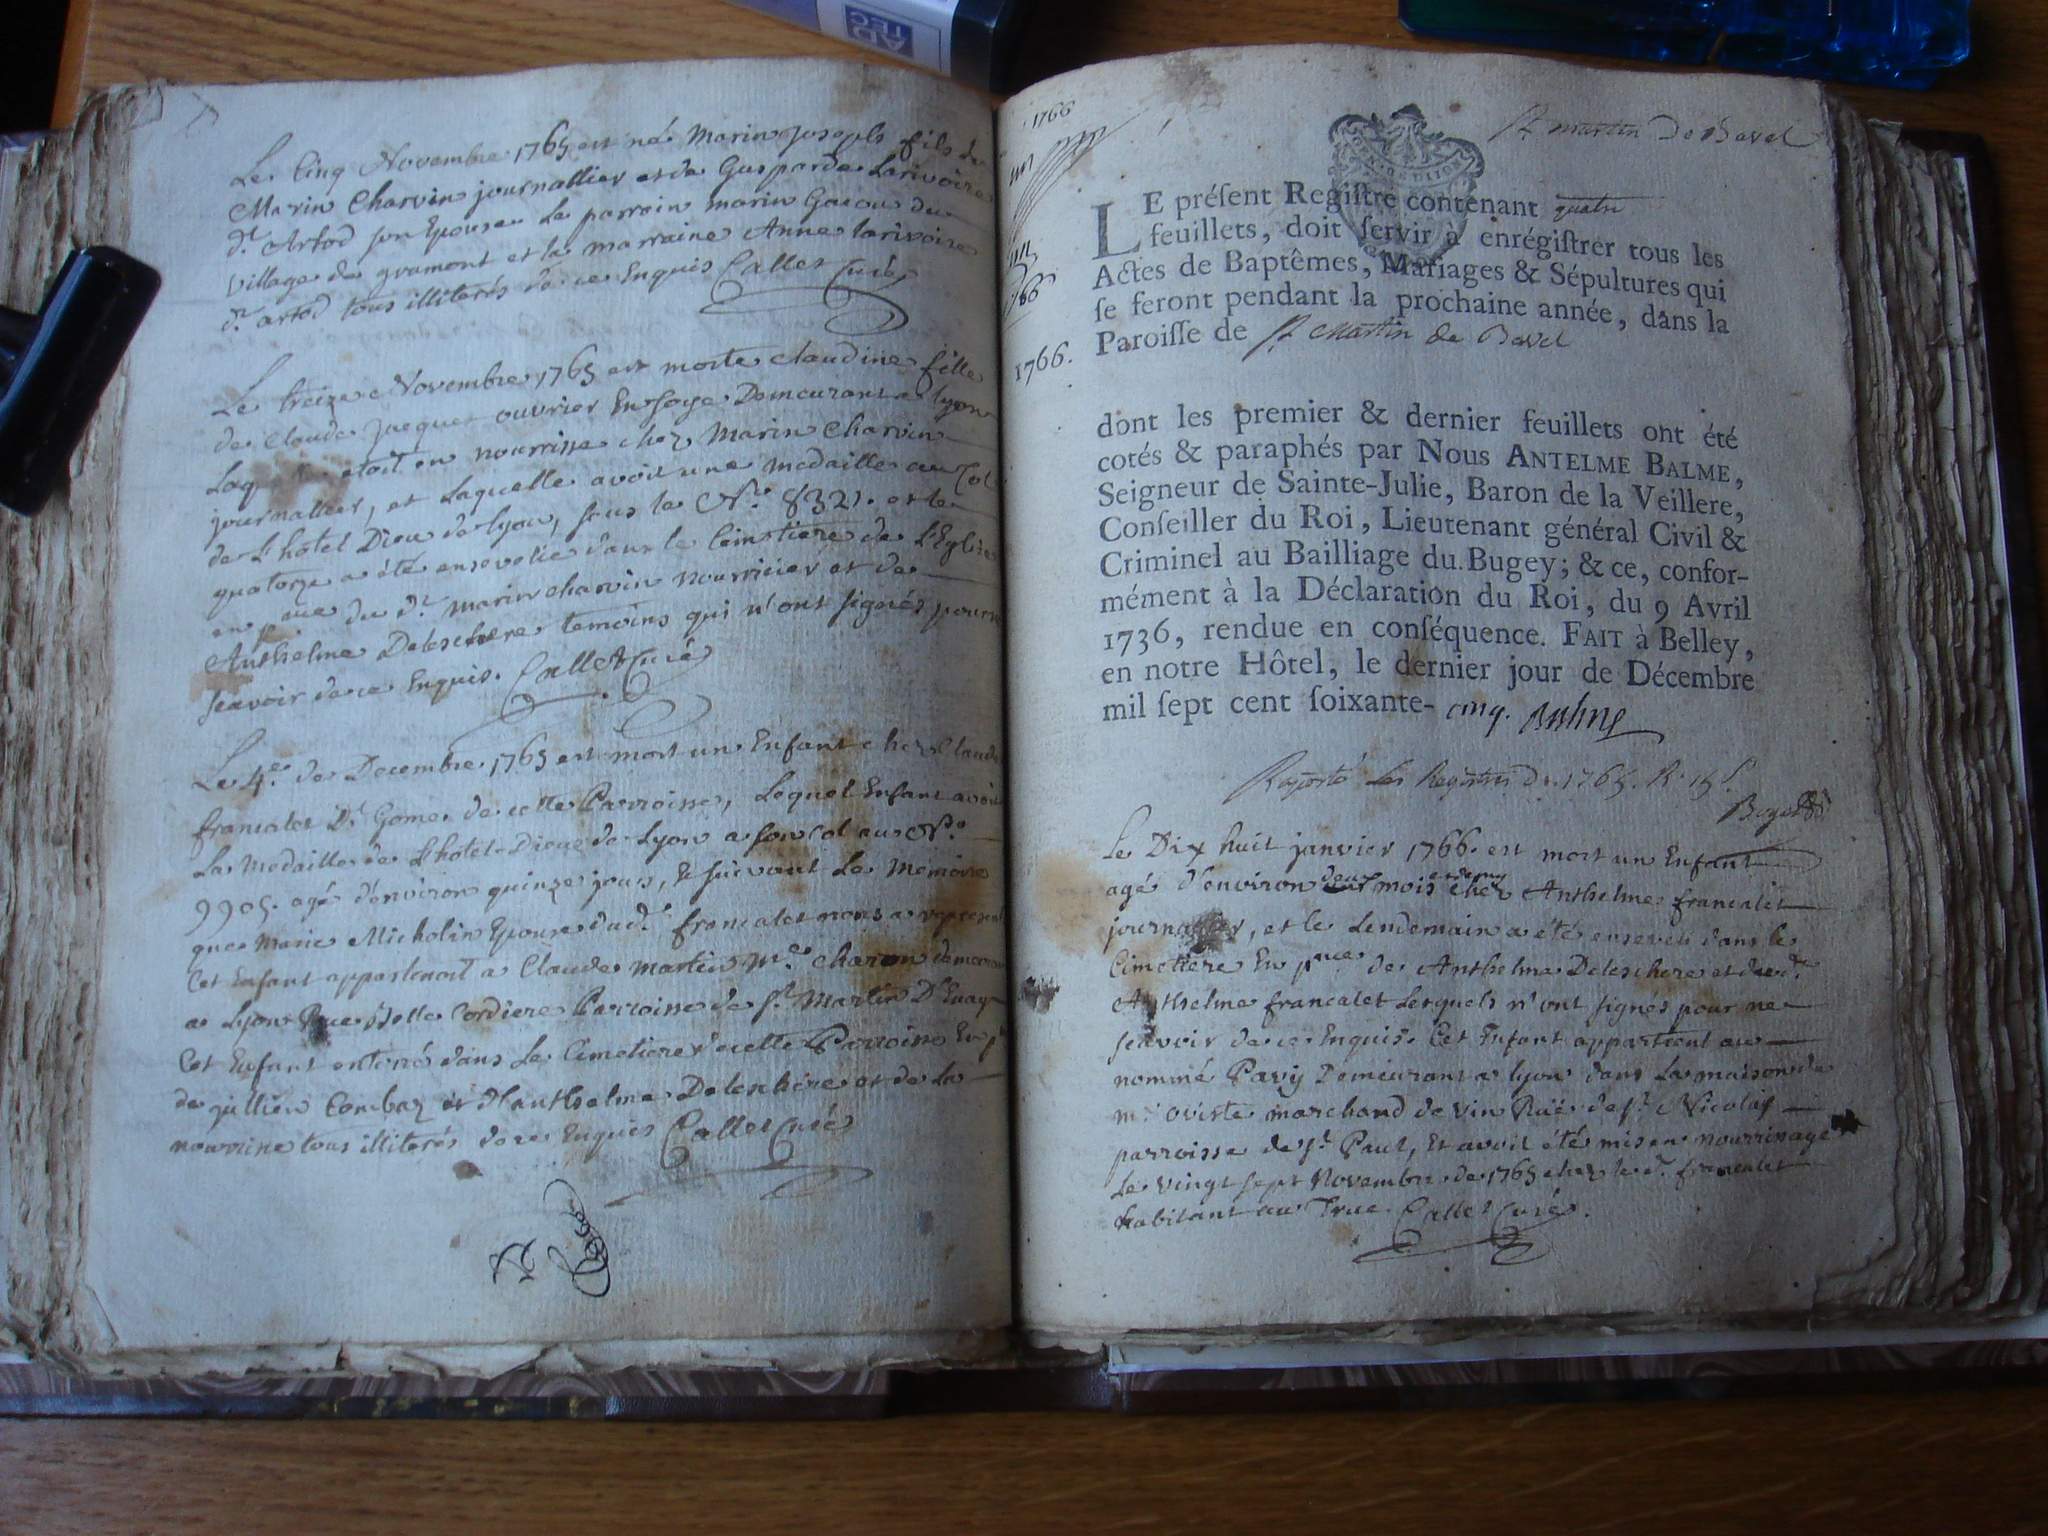 AD
TEC
Le Cinq Novembre 1765 est né Marin joseph fils de
Marin Charvin journallier et de Gasparde Larivoire
d.t Artod son Epouse Le parrain marin
village de gramont et la marraine Anne larivoire
d.t artod tous illiterés de ce Enquis Callet Curé
Le treize Novembre 1765 est morte claudine fille
de Claude jacquet ouvrier En soye Demeurant a lyon
etoit en nourrisse chez Marin Charvin
journallier, et Laquelle avoit une medaille au Col
de L'hotel Dieu de lyon, sous le N.o 8321. et le
quatorze a été ensevelie dans le Cimetiere de L'Eglise
en p.nce du d.t marin charvin nourricier et de
Anthelme Deleschere temoins qui n'ont signés pour ne
sçavoir de ce Enquis. Callet Curé
Le 4.e de Decembre 1765 est mort un Enfant chez Claude
francalet D.t Gome de cette Parroisse, Lequel Enfant avoit
La Medaille de L'hotel-Dieu de Lyon a son Col au N.o
9905. agé d'environ quinze jours, & suivant Le Memoire
que Marie Micholin Epouse dud.t francalet nous a represent
Cet Enfant appartenoit a Claude martin m.e charon demeurant
a Lyon Rue Belle Cordiere Parroisse de S.t Martin D'Enay
Cet Enfant enterré dans Le Cimetiere de cette Parroisse En p
de jullien Combaz et d'anthelme Deleschere et de La
nourrine tous illiterés de ce Enquis Callet Curé
1766
St martin De Bavel
LE préſent Regiſtre contenant quatre
feuillets, doit ſervir à enrégiſtrer tous les
Actes de Baptêmes, Mariages & Sépultures qui
ſe feront pendant la prochaine année, dans la
Paroiſſe de St Martin de Bavel
1766
1766.
dont les premier & dernier feuillets ont été
cotés & paraphés par Nous ANTELME BALME,
Seigneur de Sainte-Julie, Baron de la Veillere,
Conſeiller du Roi, Lieutenant général Civil &
Criminel au Bailliage du Bugey; & ce, confor-
mément à la Déclaration du Roi, du 9 Avril
1736, rendue en conſéquence. FAIT à Belley,
en notre Hôtel, le dernier jour de Décembre
mil ſept cent ſoixante- cinq. Balme
Raporté Les Registres de 1765. R. 15 s.
Le Dix huit janvier 1766. est mort un Enfant
agé d'environ deux mois et demy chez Anthelme francalet
journallier, et le Lendemain a été enseveli dans le
Cimetiere En p.nce de Anthelme Deleschere et dud.t
Anthelme francalet Lesquels n'ont signés pour ne
sçavoir de ce Enquis. Cet Enfant appartient au
nommé Pavy Demeurant a lyon dans La maison de
m.r oviste marchand de vin Ruë de S.t Nicolas
parroisse de S.t Paul, Et avoit été mis en nourrissage
Le vingt sept Novembre de 1765 chez le d.t francalet
habitant au Truc. Callet Curé.